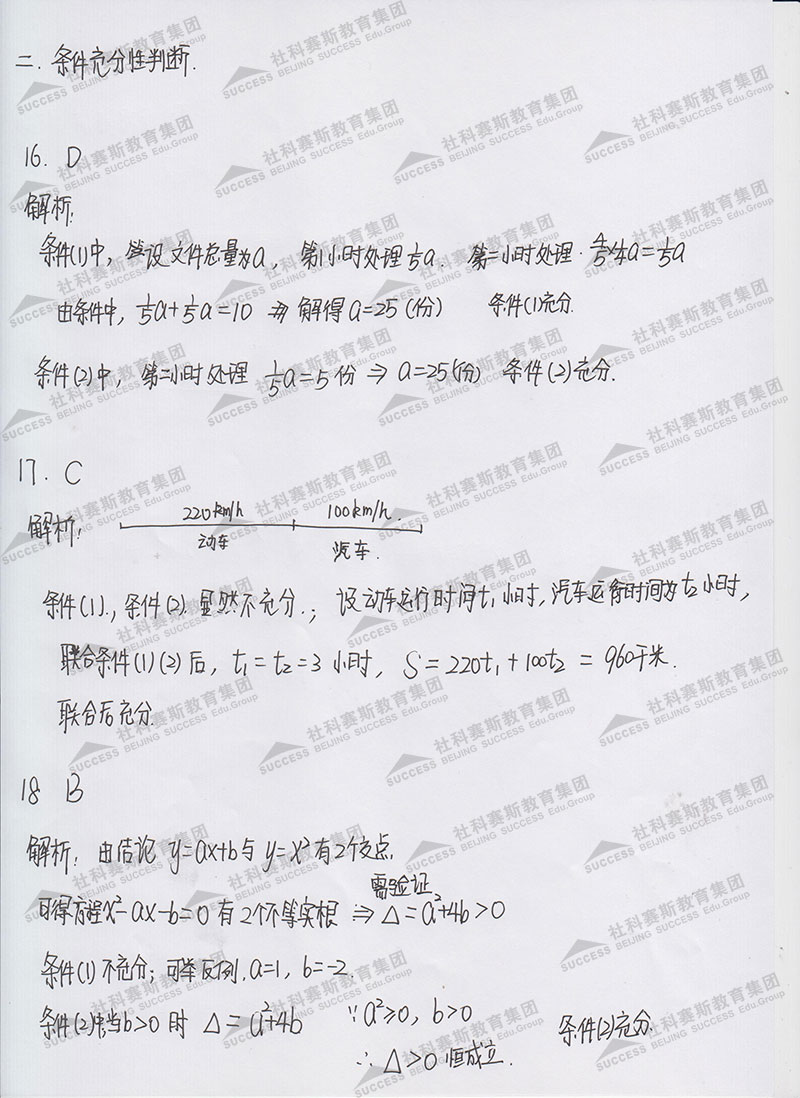 二. 条件充分性判断.
16. D
解析:
条件(1)中, 设文件总量为a, 第1小时处理1/5a. 第二小时处理·4/5·1/4a=1/5a
由条件中, 1/5a+1/5a=10 ⇒ 解得a=25(份) 条件(1)充分.
条件(2)中, 第二小时处理 1/5a=5份 ⇒ a=25(份) 条件(2)充分.
17. C
解析:
220km/h 100km/h.
动车 汽车.
条件(1)., 条件(2). 显然不充分.; 设动车运行时间t₁小时, 汽车运行时间为t₂小时,
联合条件(1)(2)后, t₁=t₂=3小时, S=220t₁+100t₂=960千米.
联合后充分.
18 B
解析: 由结论 y=ax+b与y=x²有2个交点,
需验证
可得方程x²-ax-b=0有2个不等实根 ⇒ △=a²+4b>0
条件(1)不充分; 可举反例, a=1, b=-2.
条件(2)中当b>0时 △=a²+4b ∵a²≥0, b>0 条件(2)充分.
∴△>0恒成立.
社科赛斯教育集团
BEIJING SUCCESS Edu.Group
SUCCESS